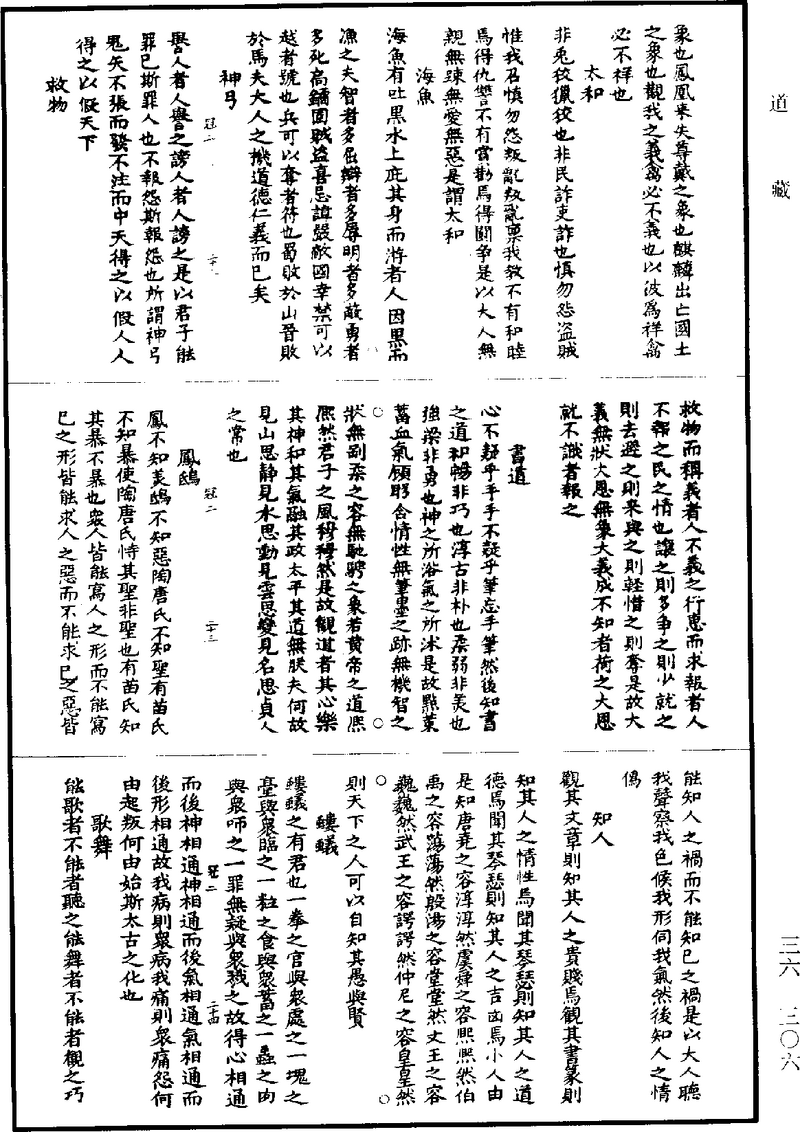 道藏
三六 三〇六
象也鳳凰來失尊戴之象也麒麟出亡國土
之象也觀我之義禽必不義也以彼爲祥禽
必不祥也
太和
非兎狡獵狡也非民詐吏詐也慎勿怨盜賊
盜賊
惟我召慎勿怨叛亂叛亂稟我教不有和睦
焉得仇讐不有賞勸焉得鬬争是以大人無
親無疎無愛無惡是謂太和
海魚
海魚有吐黑水上庇其身而游者人因黑而
漁之夫智者多屈辯者多辱明者多蔽勇者
多死扃鐍固賊盜喜忌諱嚴敵國幸禁可以
越者號也兵可以奪者符也蜀敗於山晉敗
於馬夫大人之機道德仁義而已矣
神弓
冠二
二十一
譽人者人譽之謗人者人謗之是以君子能
罪已斯罪人也不報怨斯報怨也所謂神弓
鬼矢不張而發不注而中天得之以假人人
得之以假天下
救物
救物而稱義者人不義之行惠而求報者人
不報之民之情也讓之則多争之則少就之
則去避之則來與之則輕惜之則奪是故大
義無狀大恩無象大義成不知者荷之大恩
就不識者報之
書道
心不疑乎手手不疑乎筆忘手筆然後知書
之道和暢非巧也淳古非朴也柔弱非美也
強梁非勇也神之所浴氣之所沐是故點策
蓄血氣顧盼含情性無筆墨之跡無機智之
狀無剛柔之容無馳騁之象若黄帝之道熙
熙然君子之風穆穆然是故觀道者其心樂
其神和其氣融其政太平其道無朕夫何故
見山思静見水思動見雲思變見名思貞人
之常也
鳳鴟
冠二
二十三
鳳不知美鴟不知惡陶唐氏不知聖有苗氏
不知暴使陶唐氏恃其聖非聖也有苗氏知
其暴不暴也衆人皆能寫人之形而不能寫
已之形皆能求人之惡而不能求已之惡皆
能知人之禍而不能知已之禍是以大人聽
我聲察我色候我形伺我氣然後知人之情
僞
知人
觀其文章則知其人之貴賤焉觀其書篆則
知其人之情性焉聞其琴瑟則知其人之道
德焉聞其琴瑟則知其人之吉凶焉小人由
是知唐堯之容淳淳然虞舜之容熙熙然伯
禹之容蕩蕩然殷湯之容堂堂然文王之容
巍巍然武王之容諤諤然仲尼之容皇皇然
則天下之人可以自知其愚與賢
螻蟻
螻蟻之有君也一拳之宫與衆處之一塊之
臺與衆臨之一粒之食與衆蓄之一蟲之肉
與衆咂之一罪無疑與衆戮之故得心相通
冠二
二十四
而後神相通神相通而後氣相通氣相通而
後形相通故我病則衆病我痛則衆痛怨何
由起叛何由始斯太古之化也
歌舞
能歌者不能者聽之能舞者不能者觀之巧